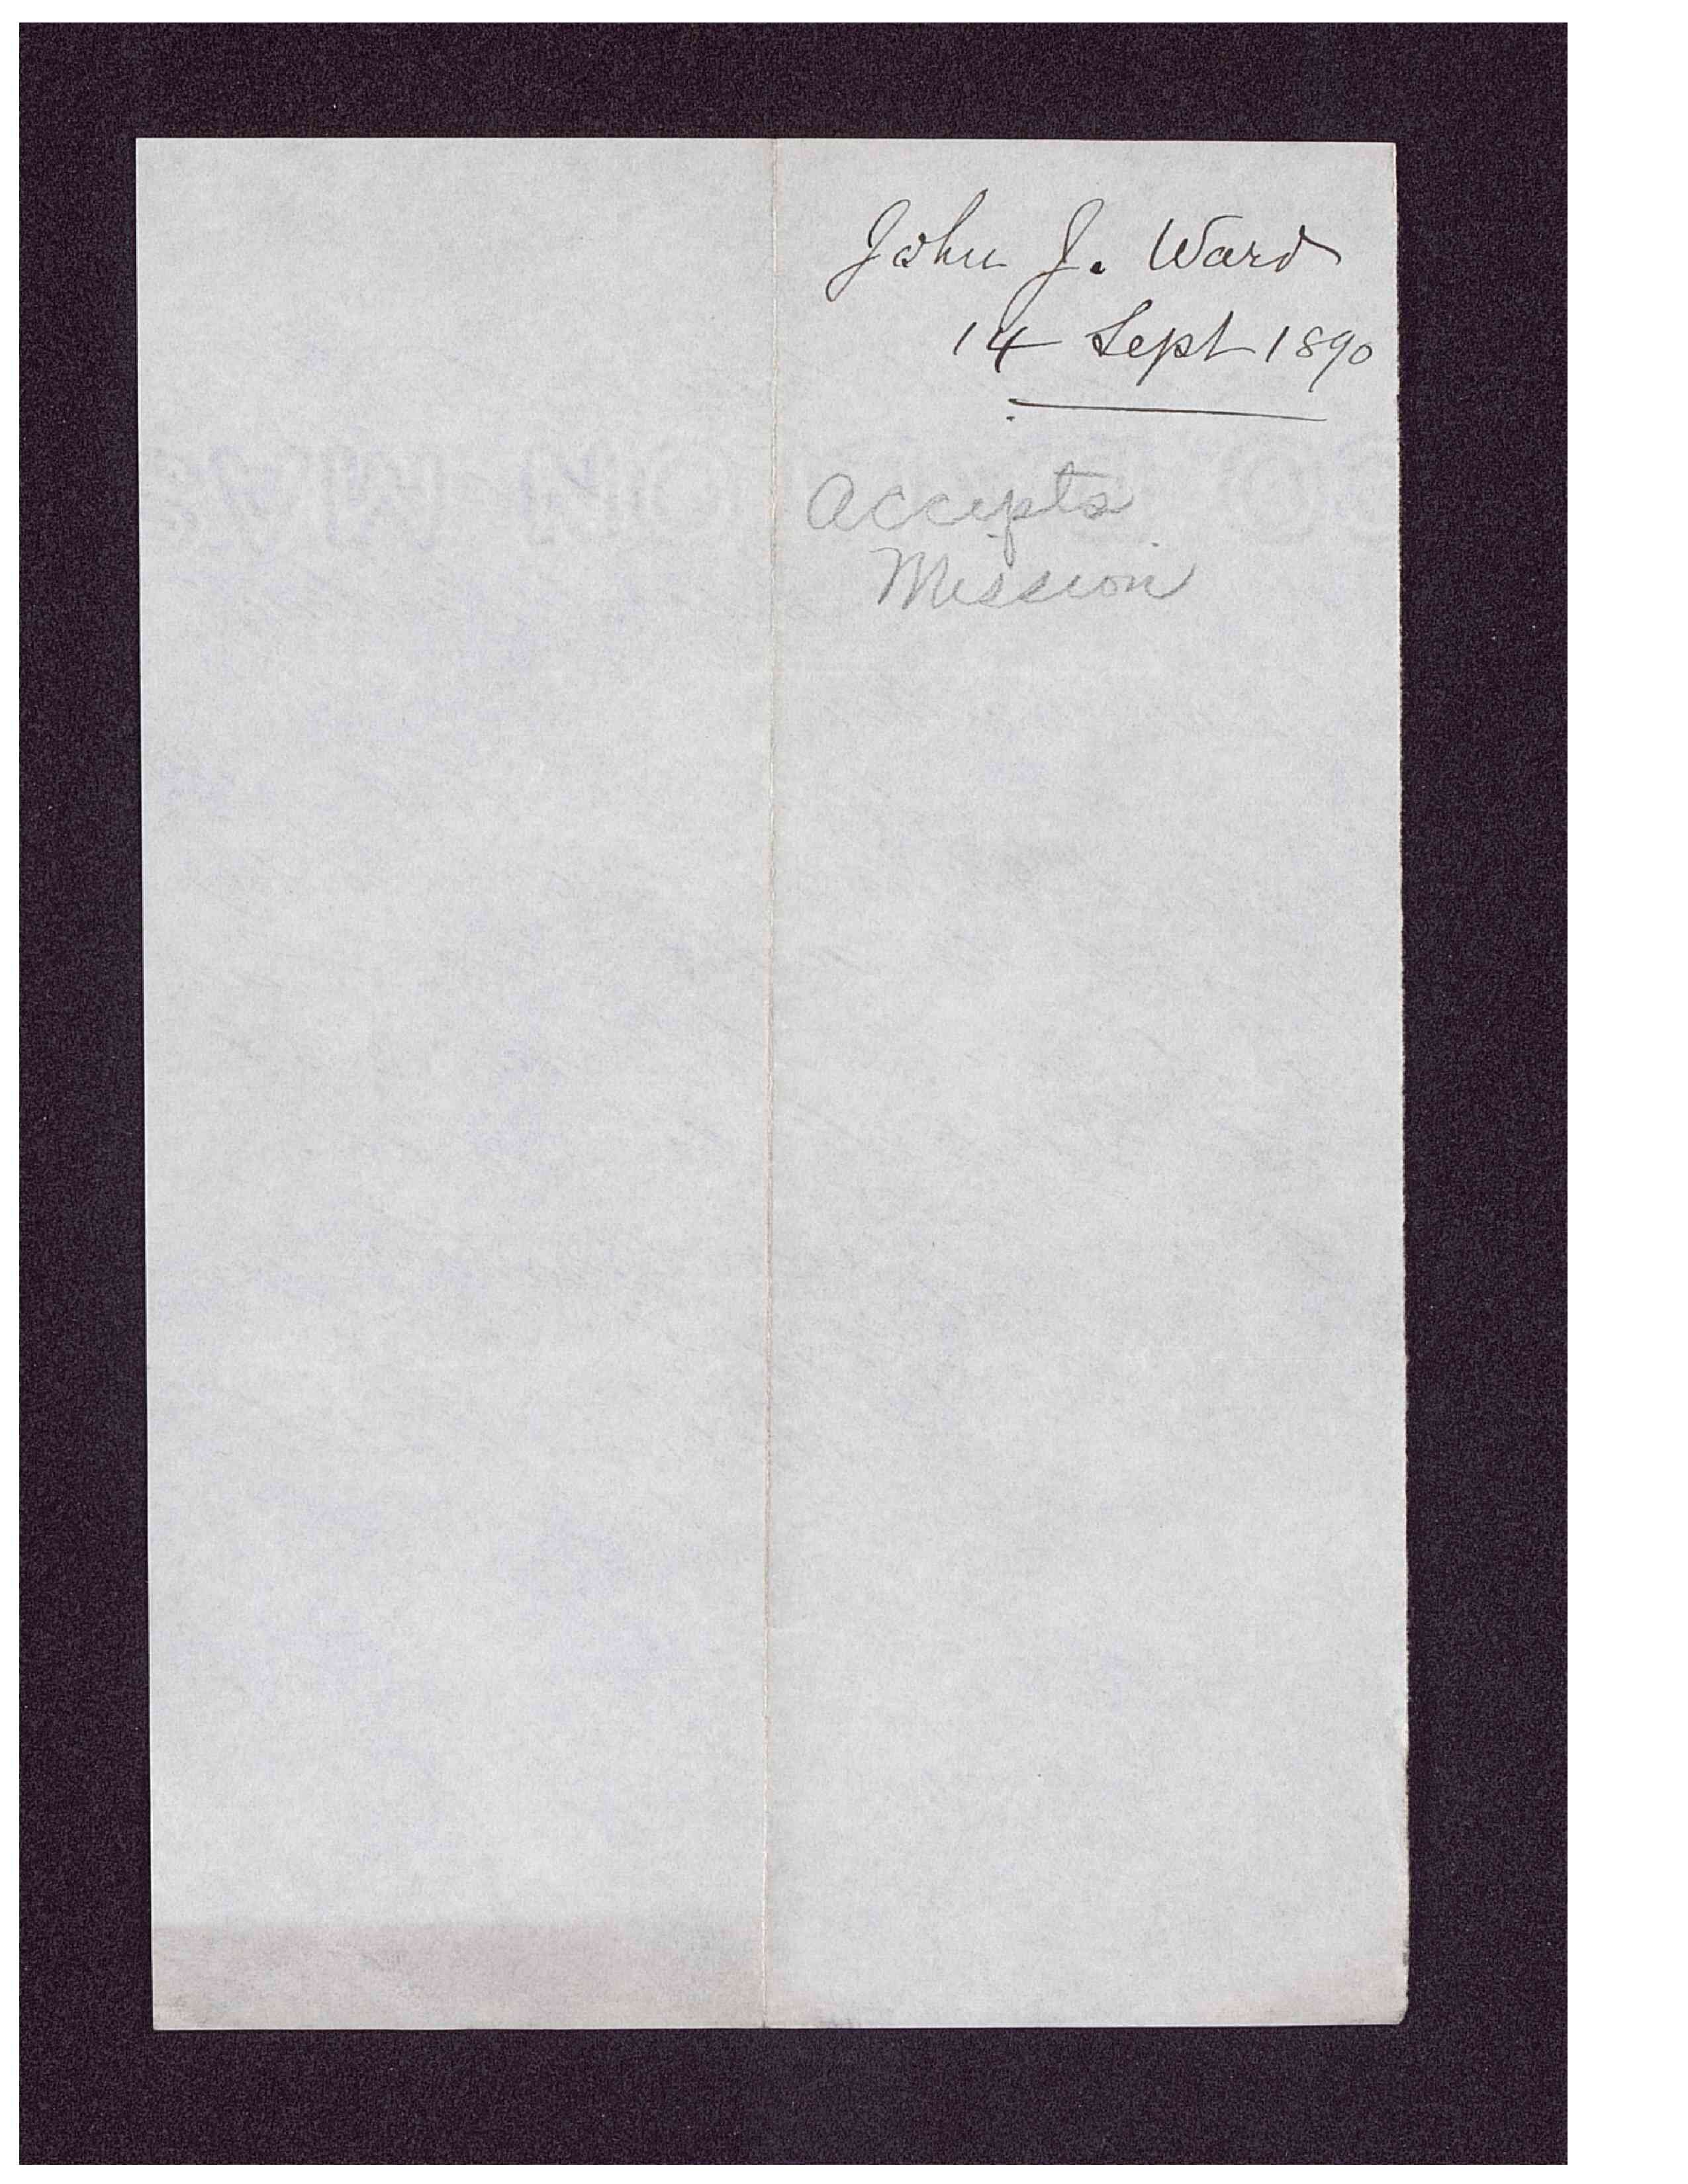 John J. Ward
14 Sept 1890
Accepts
Mission